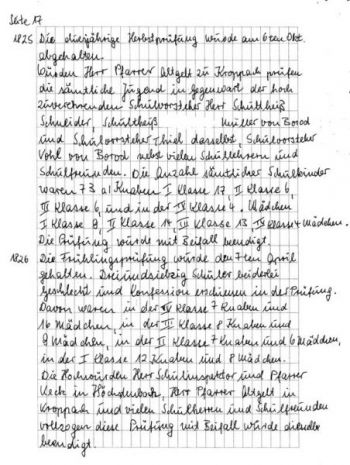 Seite 17
1825 Die diesjährige Herbstprüfung wurde am 6ten Okt.
abgehalten.
Würden Herr Pfarrer Altgelt zu Kroppach prüfen
die sämtliche Jugend in gegenwart der hoch
zuverehrenden Schulvorsteher Herr Schultheiß
Schneider, Schultheiß Müller von Borod
und Schulvorsteher Thiel daselbst, Schulvorsteher
Vohl von Borod nebst vielen Schullehrern und
Schulfreunden. Die Anzahl sämtlicher Schulkinder
waren 73 a) Knaben I Klasse 17, II Klasse 6,
III Klasse 6, und in der IV Klasse 4. Mädchen,
I Klasse 9, II Klasse 14, III Klasse 13 IV Klasse 4 Mädchen.
Die Prüfung wurde mit Beifall beendigt.
1826 Die Frühlingsprüfung wurde den 7ten April
gehalten. Dreiundsiebzig Schüler beiderlei
Geschlecht und Konfession erschienen in der Prüfung.
Davon waren in der IV Klasse 7 Knaben und
16 Mädchen, in der III Klasse 8 Knaben und
9 Mädchen, in der II Klasse 7 Knaben und 6 Mädchen,
in der I Klasse 12 Knaben und 8 Mädchen.
Die Hochwürden Herr Schulinspektor und Pfarrer
Keck in Höchstenbach, Herr Pfarrer Altgelt in
Kroppach und vielen Schulherren und Schulfreunden
vollzogen diese Prüfung mit Beifall wurde dieselbe
beendigt.